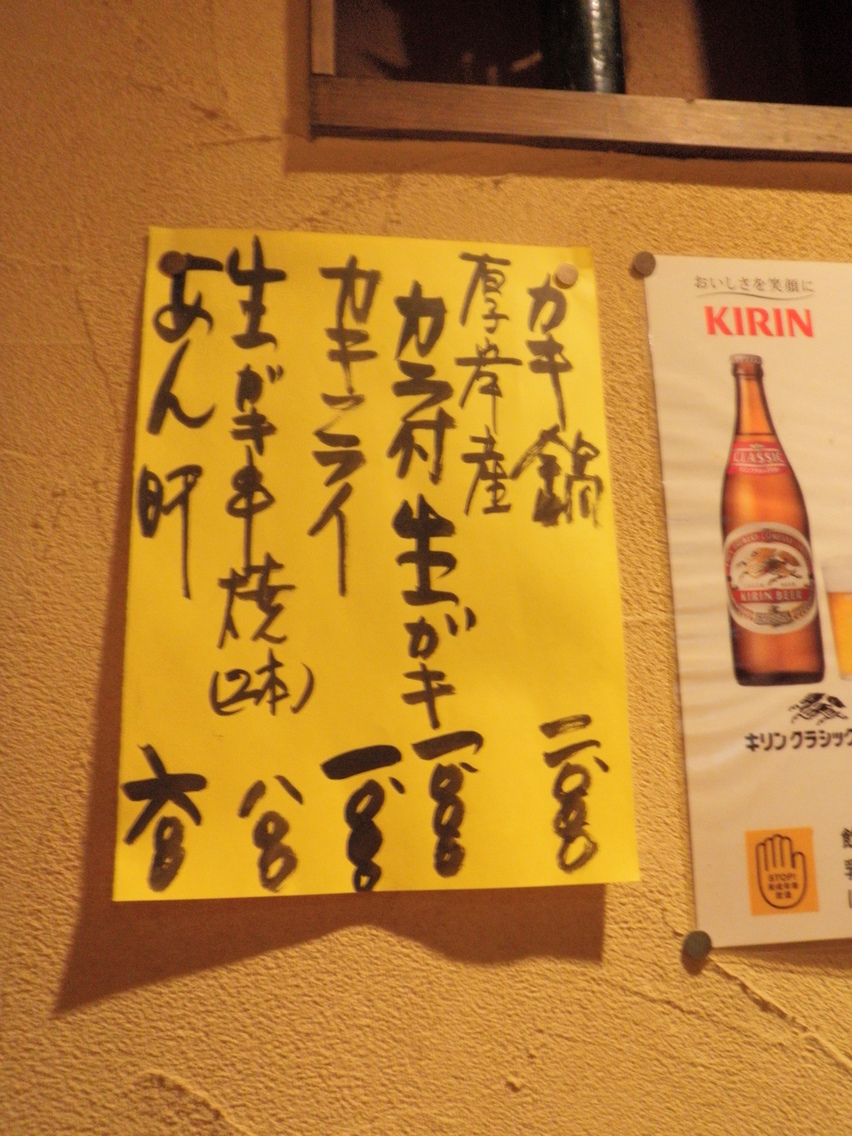 カキ鍋 二、〇〇〇
厚岸産
カラ付生ガキ 一、〇〇〇
カキフライ 一、〇〇〇
生ガキ串焼(2本) 八〇〇
あん肝 六〇〇
おいしさを笑顔に
KIRIN
CLASSIC
KIRIN BEER
キリンクラシック
STOP!